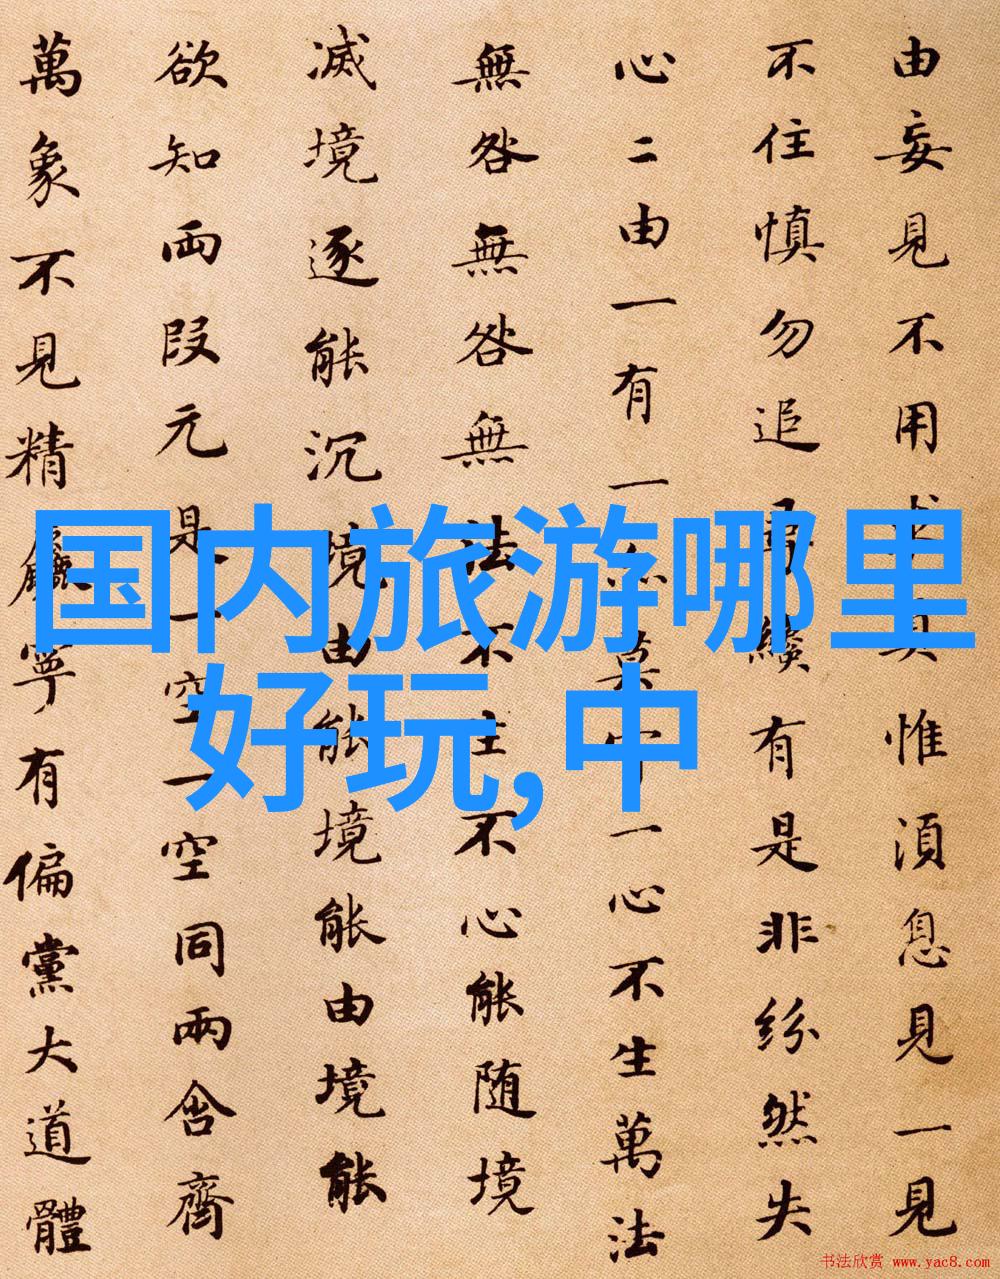 由妄見不用求真惟須息見一見
不住慎勿追尋纔有是非紛然失
心二由一有一亦莫守一心不生萬法
無咎無咎無法不生不心能随境
滅境逐能沉境由能境能由境能
欲知両段元是一空一空同兩含齊
萬象不見精麤寧有偏黨大道體
国内旅游哪里
好玩,中
书法欣赏 www.yac8.com